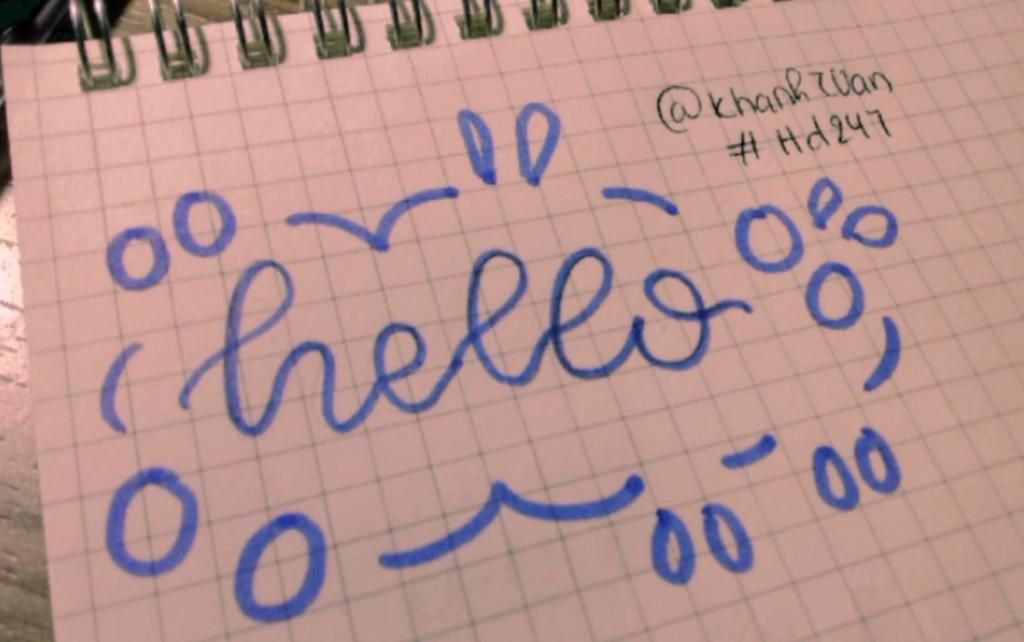 @Khanh Tuan
#Hd247
hello